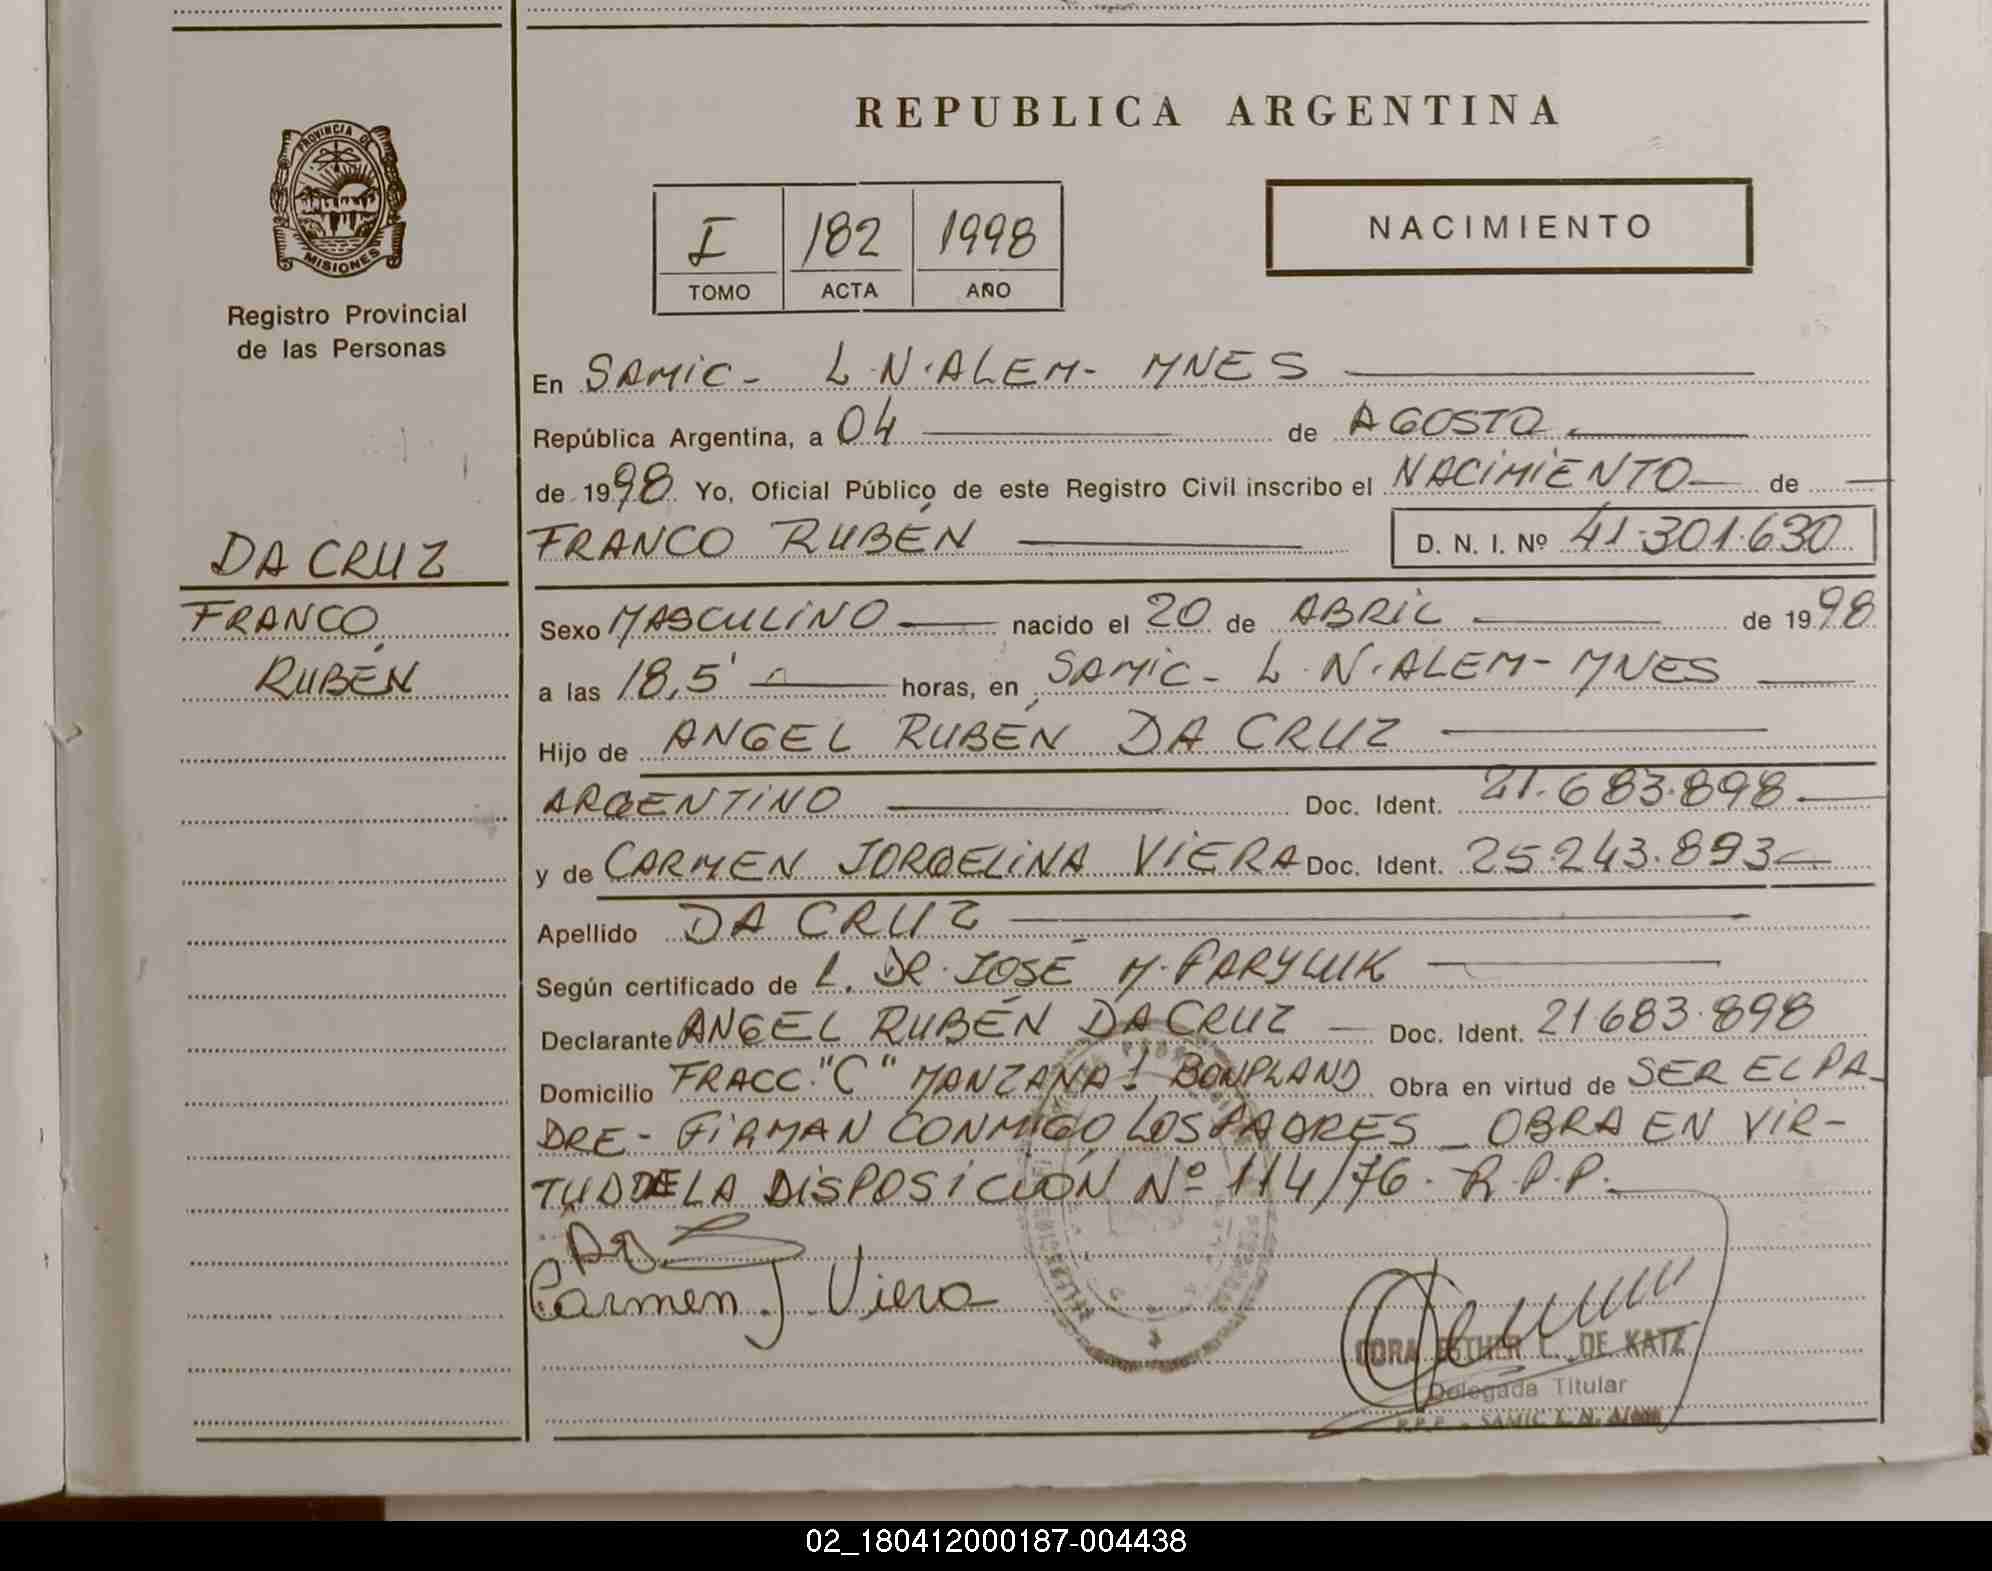 REPUBLICA ARGENTINA
PROVINCIA DE
MISIONES
Registro Provincial
de las Personas
I 182 1998
TOMO ACTA AÑO
NACIMIENTO
En SAMIC - L.N. ALEM - MNES
República Argentina, a 04 de AGOSTO
de 1998. Yo, Oficial Público de este Registro Civil inscribo el NACIMIENTO de
FRANCO RUBÉN D. N. I. Nº 41.301.630
DA CRUZ
FRANCO
RUBÉN
Sexo MASCULINO nacido el 20 de ABRIL de 1998
a las 18,5' horas, en SAMIC - L.N. ALEM - MNES
Hijo de ANGEL RUBÉN DA CRUZ
ARGENTINO Doc. Ident. 21.683.898
y de CARMEN JORGELINA VIERA Doc. Ident. 25.243.893
Apellido DA CRUZ
Según certificado de L. DR. JOSÉ M. PARYLUK
Declarante ANGEL RUBÉN DA CRUZ Doc. Ident. 21.683.898
Domicilio FRACC. "C" MANZANA 1 BONPLAND Obra en virtud de SER EL PA-
DRE - FIRMAN CONMIGO LOS PADRES - OBRA EN VIR-
TUD DE LA DISPOSICIÓN Nº 114/76. R.P.P.
Carmen J Viera
DORA ESTHER L. DE KATZ
Delegada Titular
R.P.P. - SAMIC L. N. Alem
02_180412000187-004438